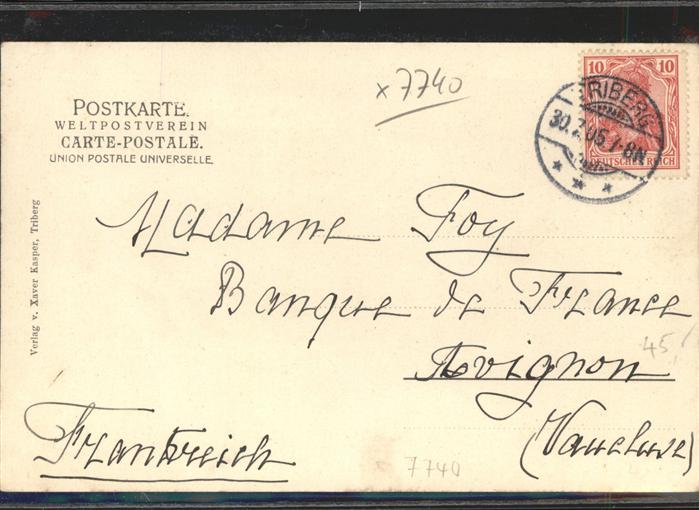 x 7740
POSTKARTE.
WELTPOSTVEREIN
CARTE-POSTALE.
UNION POSTALE UNIVERSELLE.
10 10
DEUTSCHES REICH
TRIBERG
30.7.05. 7-8N
Madame Foy
Banque de France
45
Avignon
(Vaucluse)
Frankreich
7740
Verlag v. Xaver Kasper, Triberg